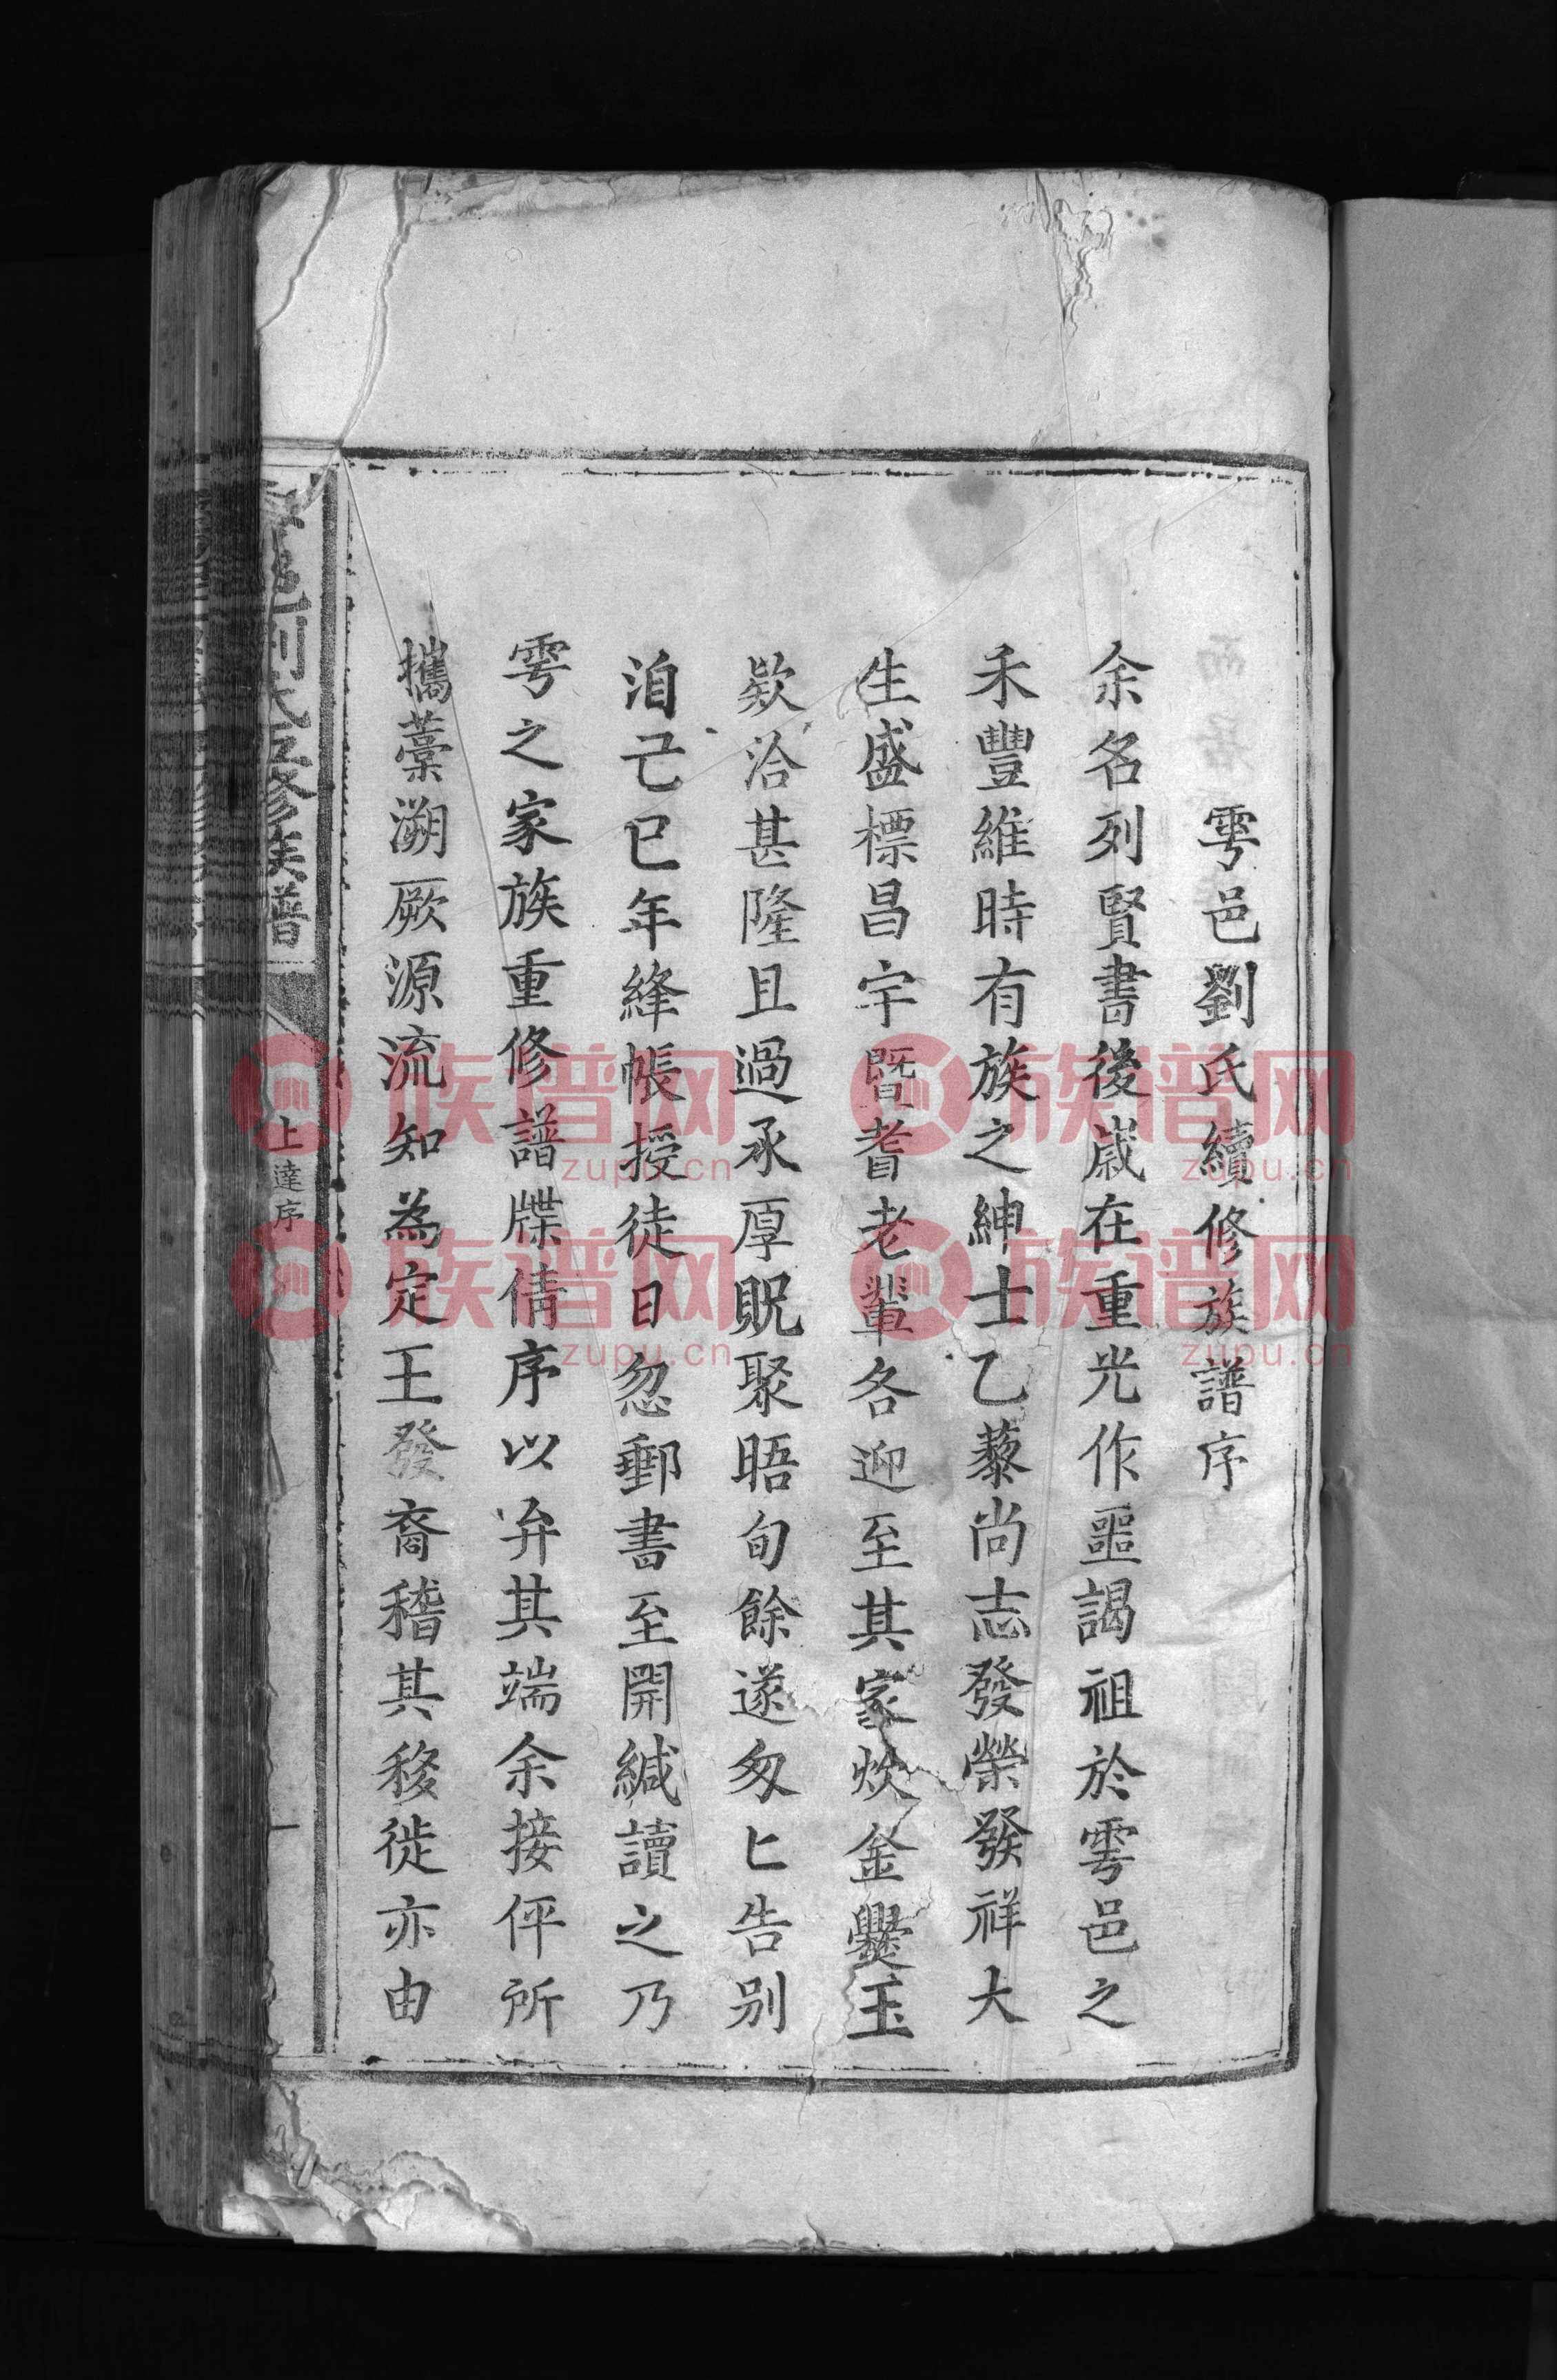 雩邑劉氏續修族譜序
余名列賢書後歲在重光作噩謁祖於雩邑之
禾豐維時有族之紳士乙藜尚志發榮發祥大
生盛標昌宇暨耆老輩各迎至其家炊金爨玉
欵洽甚隆且過承厚貺聚晤旬餘遂匆匕告別
洎己巳年絳帳授徒日忽郵書至開緘讀之乃
雩之家族重修譜牒倩序以弁其端余接伻所
攜藁溯厥源流知為定王發裔稽其移徙亦由
邑劉氏五修族譜
上達序
一
族谱网
zupu.cn
族谱网
zupu.cn
族谱网
zupu.cn
族谱网
zupu.cn